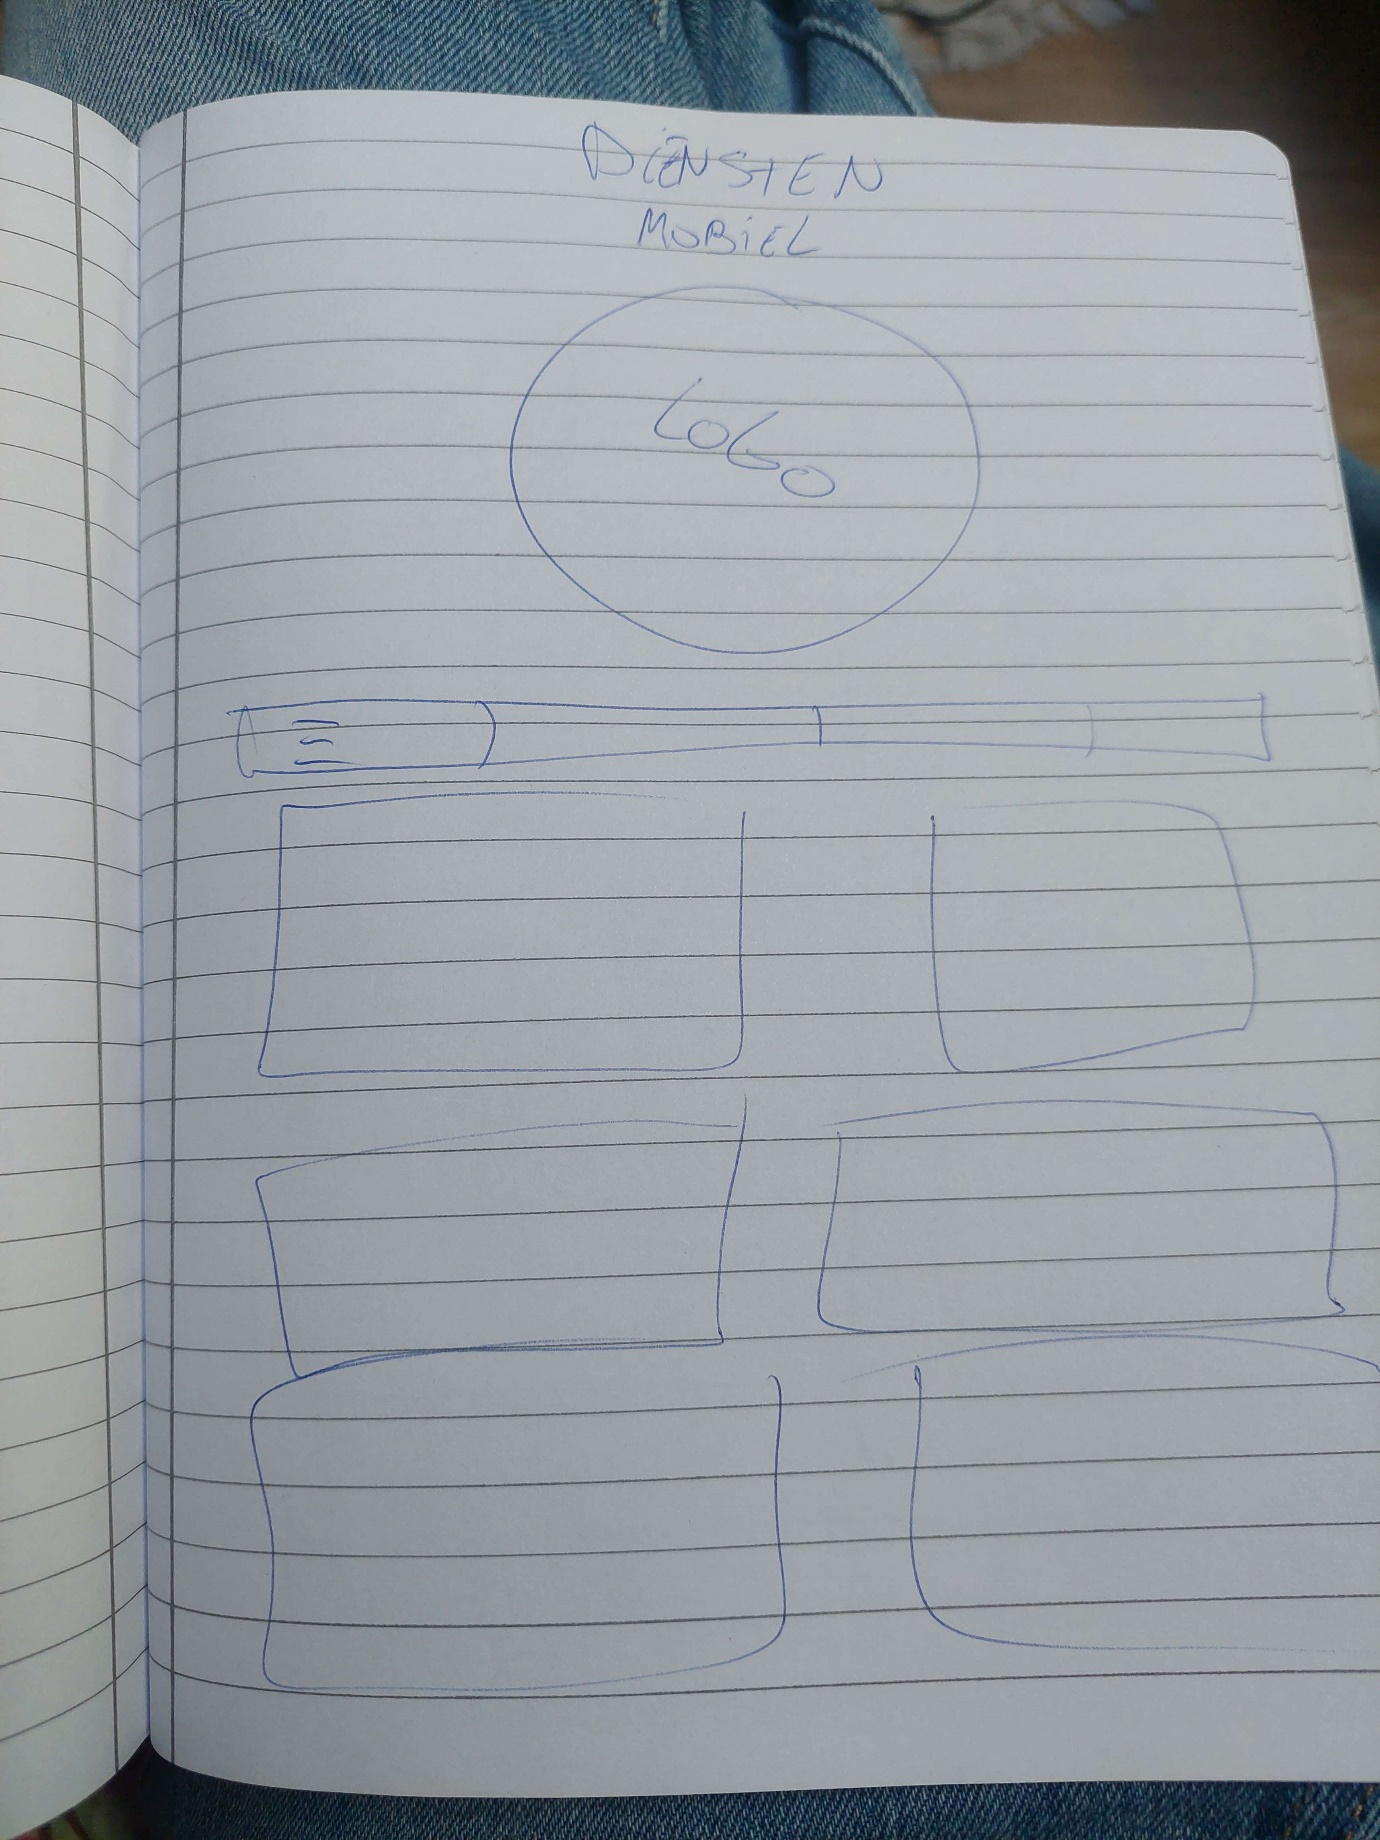 DIENSTEN
MOBIEL
LOGO